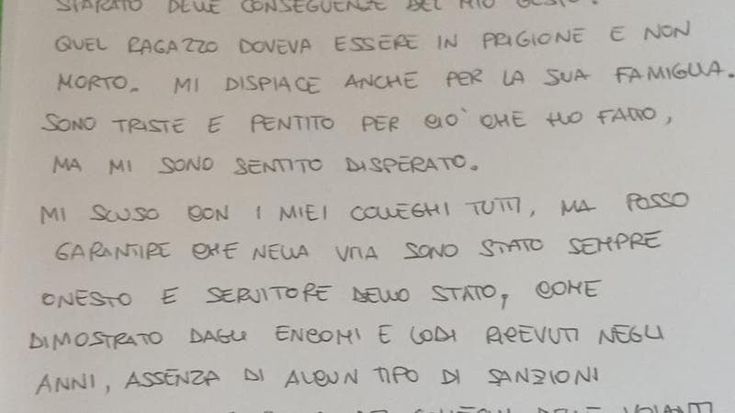 DELLE CONSEGUENZE DEL MIO GESTO.
QUEL RAGAZZO DOVEVA ESSERE IN PRIGIONE E NON
MORTO. MI DISPIACE ANCHE PER LA SUA FAMIGLIA.
SONO TRISTE E PENTITO PER CIO' CHE HO FATTO,
MA MI SONO SENTITO DISPERATO.
MI SCUSO CON I MIEI COLLEGHI TUTTI, MA POSSO
GARANTIRE CHE NELLA VITA SONO STATO SEMPRE
ONESTO E SERVITORE DELLO STATO, COME
DIMOSTRATO DAGLI ENCOMI E LODI RICEVUTI NEGLI
ANNI, ASSENZA DI ALCUN TIPO DI SANZIONI